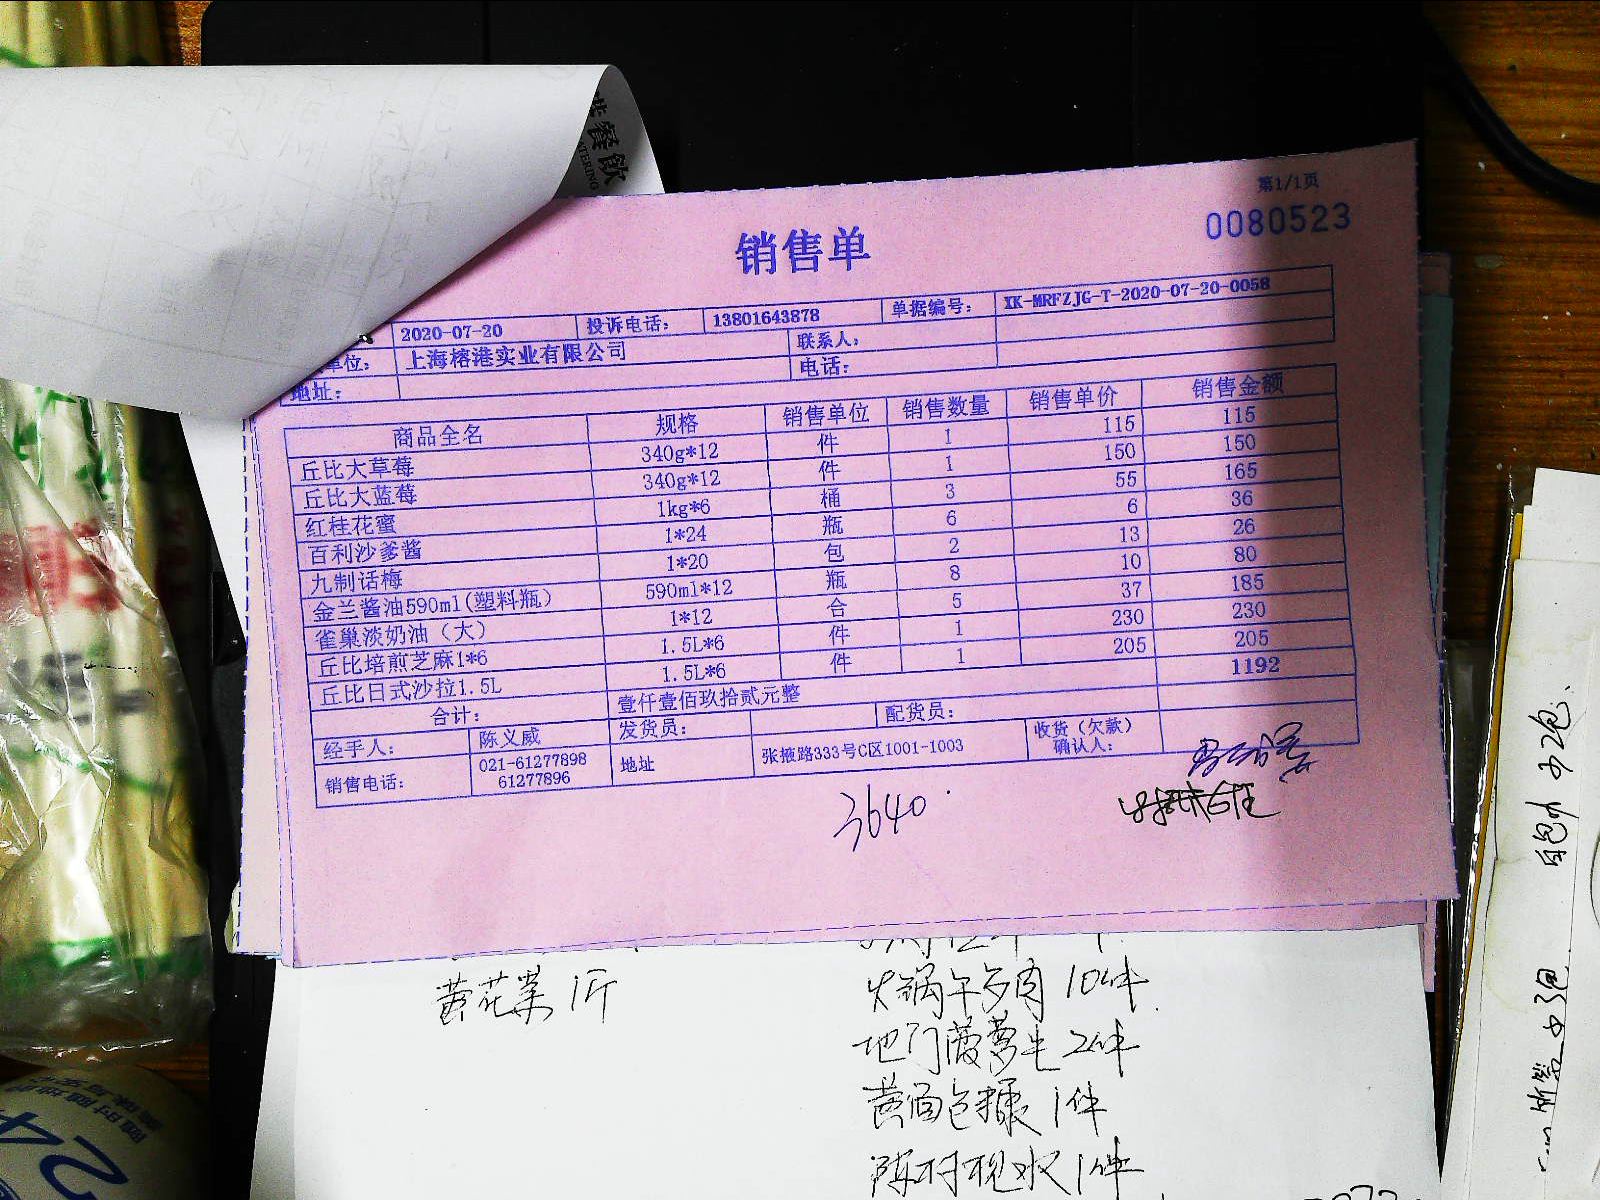 港餐飲
第1/1页
销售单
0080523
2020-07-20 投诉电话: 13801643878 单据编号: XK-MRFZJG-T-2020-07-20-0058
单位: 上海榕港实业有限公司 联系人:
地址: 电话:
商品全名 规格 销售单位 销售数量 销售单价 销售金额
丘比大草莓 340g*12 件 1 115 115
丘比大蓝莓 340g*12 件 1 150 150
红桂花蜜 1kg*6 桶 3 55 165
百利沙爹酱 1*24 瓶 6 6 36
九制话梅 1*20 包 2 13 26
金兰酱油590ml(塑料瓶) 590ml*12 瓶 8 10 80
雀巢淡奶油（大） 1*12 合 5 37 185
丘比培煎芝麻1*6 1.5L*6 件 1 230 230
丘比日式沙拉1.5L 1.5L*6 件 1 205 205
合计: 壹仟壹佰玖拾贰元整 1192
经手人: 陈义威 发货员: 配货员: 收货（欠款）确认人:
销售电话: 021-61277898 61277896 地址 张掖路333号C区1001-1003
3640
黄花菜 1斤
10件
2件
1件
1件
24